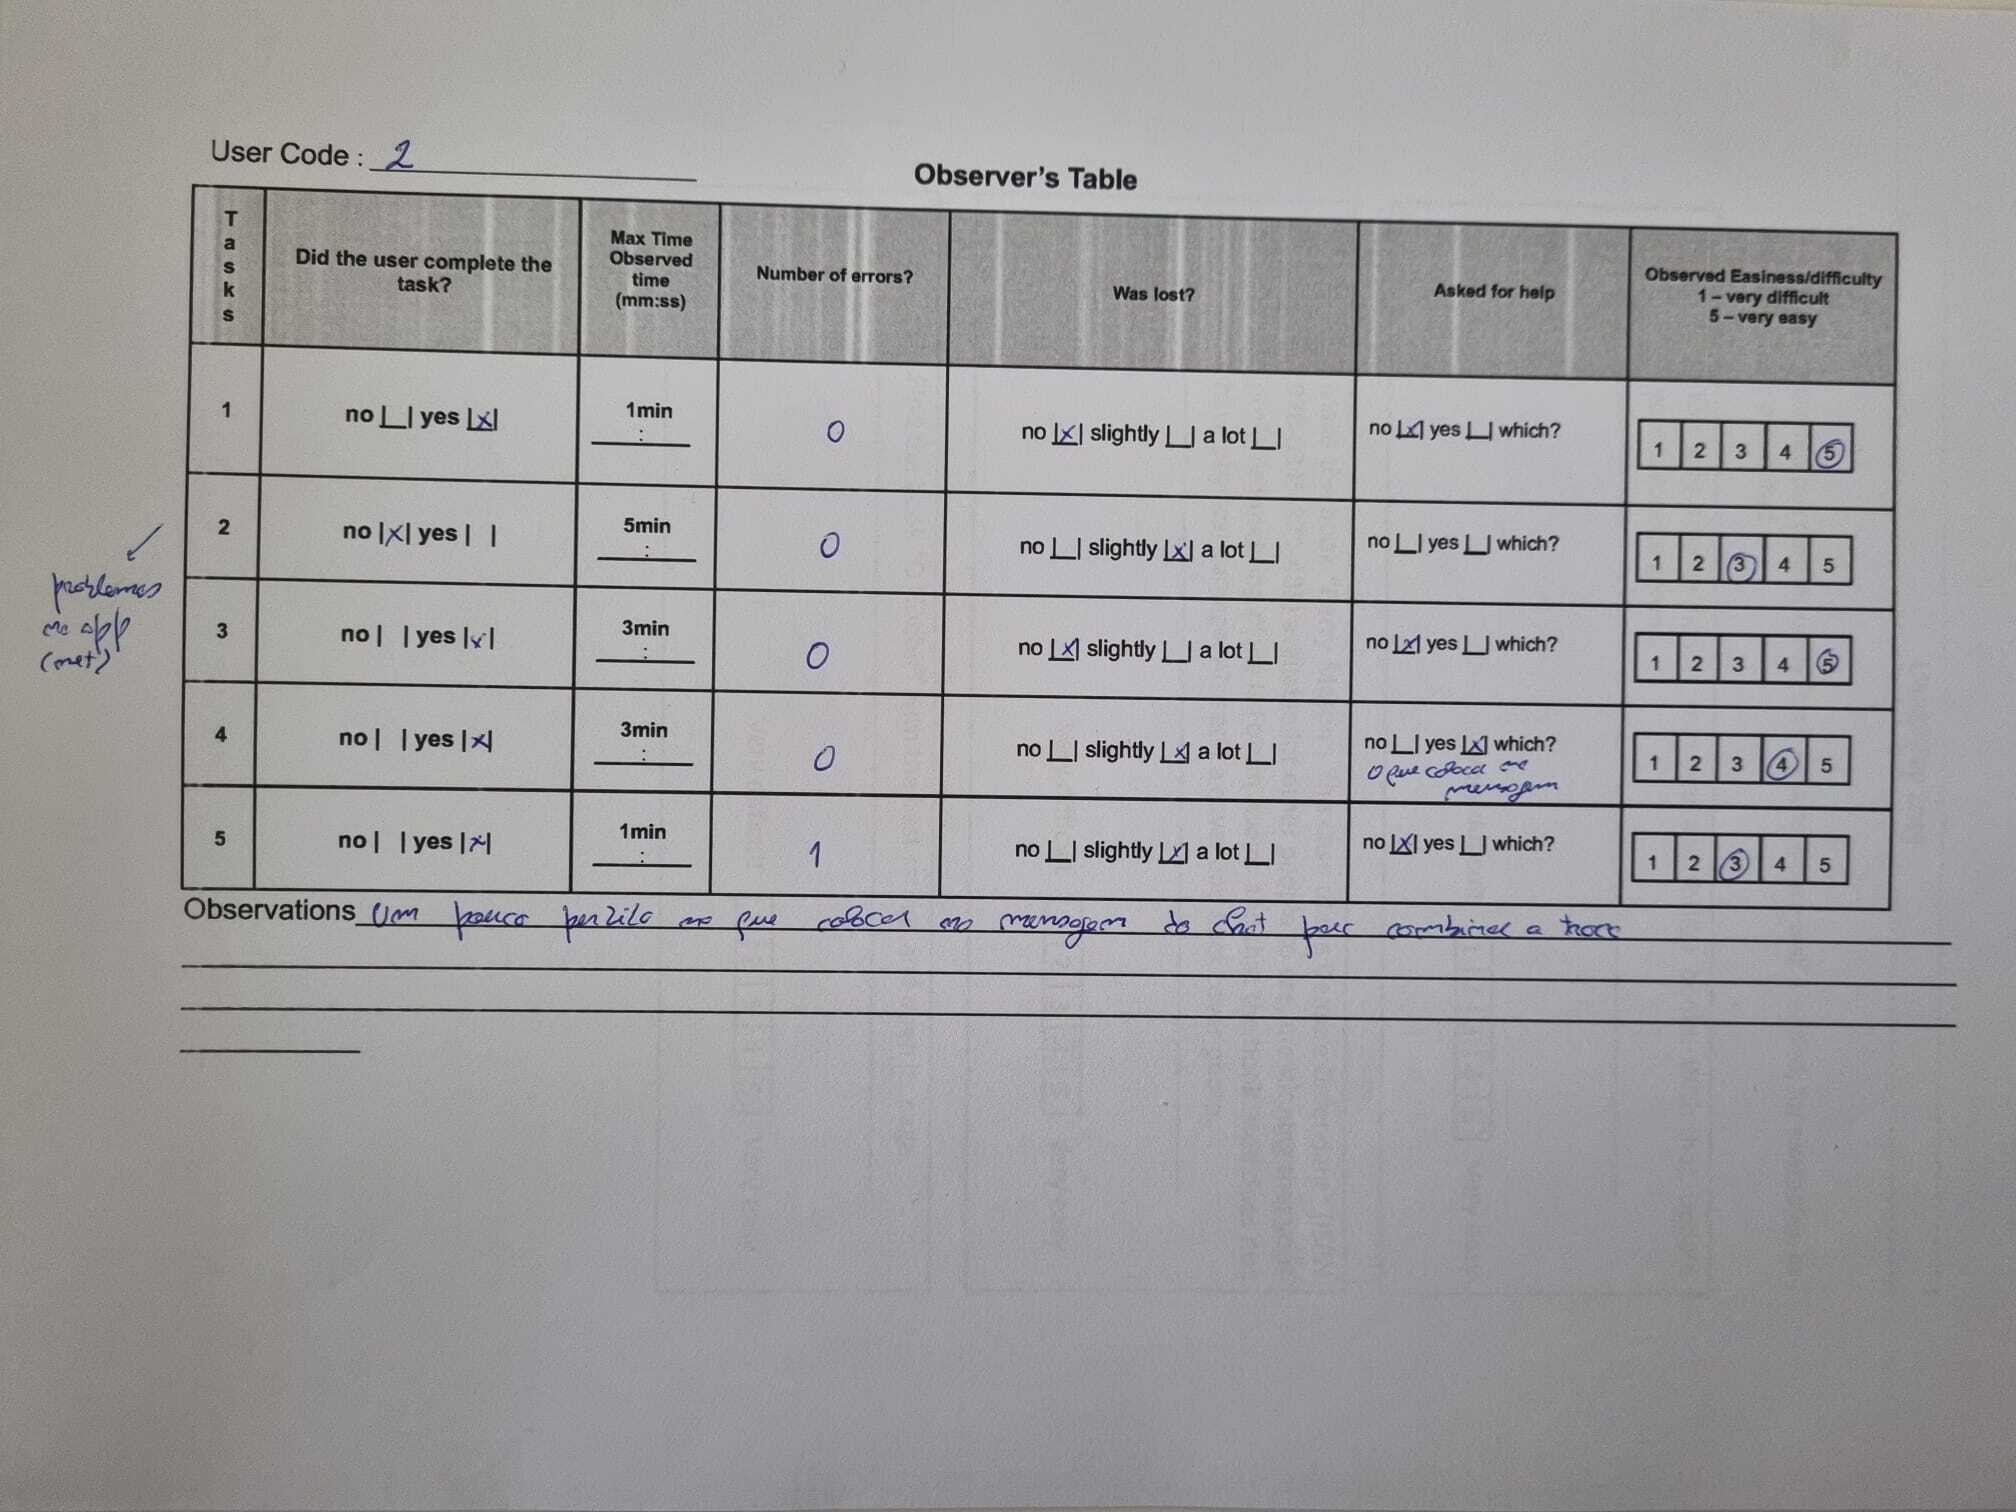 User Code : 2
Observer's Table
Tasks
Did the user complete the task?
Max Time Observed time (mm:ss)
Number of errors?
Was lost?
Asked for help
Observed Easiness/difficulty
1 – very difficult
5 – very easy
1 no |_| yes |x| 1min : 0 no |x| slightly |_| a lot |_| no |x| yes |_| which? 1 2 3 4 5
2 no |x| yes | | 5min : 0 no |_| slightly |x| a lot |_| no |_| yes |_| which? 1 2 3 4 5
problemas
na app
(net)
3 no | | yes |x| 3min : 0 no |x| slightly |_| a lot |_| no |x| yes |_| which? 1 2 3 4 5
4 no | | yes |x| 3min : 0 no |_| slightly |x| a lot |_| no |_| yes |x| which? 1 2 3 4 5
o que colocar na
mensagem
5 no | | yes |x| 1min : 1 no |_| slightly |x| a lot |_| no |x| yes |_| which? 1 2 3 4 5
Observations Um pouco no que colocar na mensagem do chat para combinar a troca